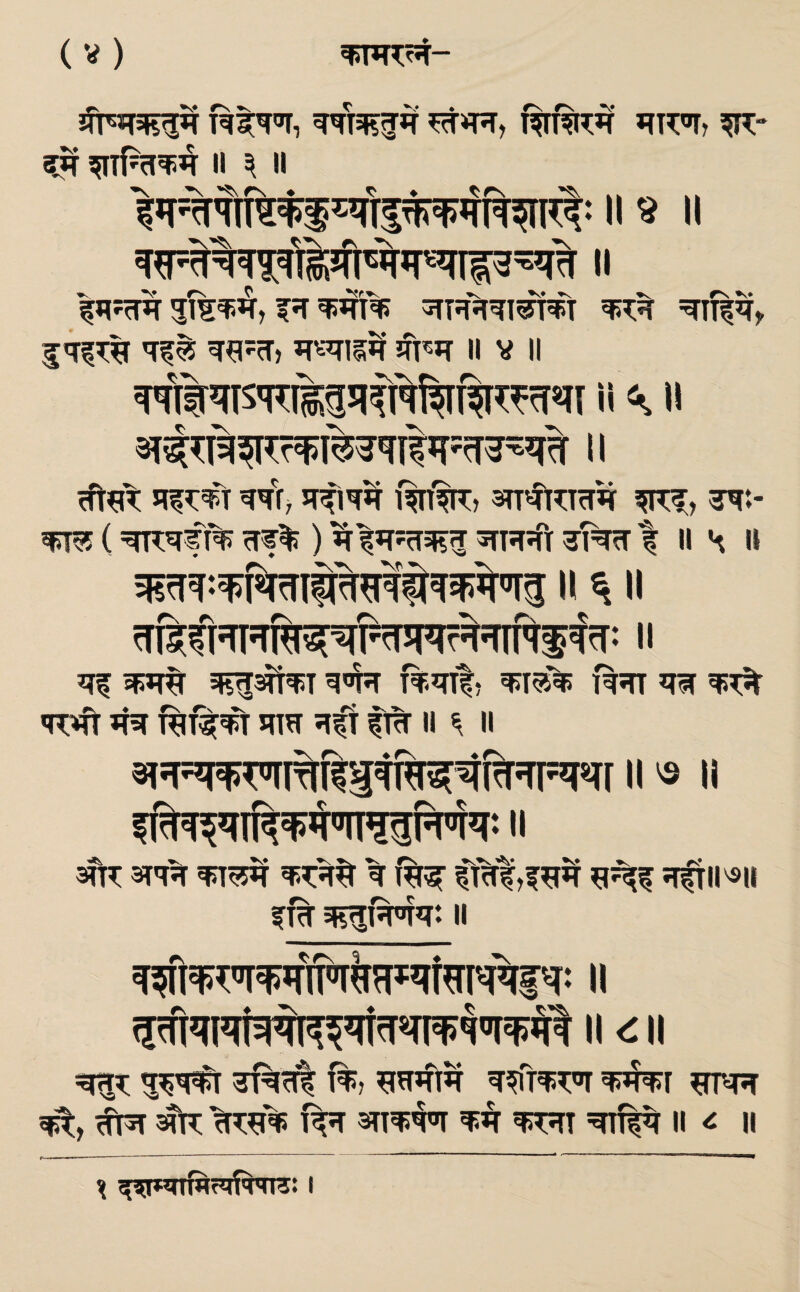 ( ४ ) कामरत्न-
ग्रीष्मऋतुमें विद्वेषण, वर्षाऋतुमें स्तंभन, शिशिरमें मारण, शर-
दमें शान्तिकर्म ॥ ३ ॥
हेमन्तेपौष्टिकंकुर्य्यादुक्तंकर्मविशारदैः ॥ ४ ॥
वसन्तश्चैवपूर्वाह्णेग्रीष्मोमध्याह्नउच्यते ॥
हेमन्तमें पुष्टिकर्म, इन कर्मोंके जाननेवालोंको करने चाहिये,
दुपहरसे पहिले वसन्त, मध्याह्नमें ग्रीष्म ॥ ४ ॥
वर्षाज्ञेयाऽपराह्णेतुप्रदोषेशिशिरस्तथा ॥ ५ ॥
अर्द्धरात्रेशरत्कालेउषाहेमन्तउच्यते ॥
तीसरे प्रहरको वर्षा, प्रदोषमें शिशिर, आधीरातमें शरद्, उषः-
काल ( चारघडीके तडके ) में हेमन्तऋतु जाननी उचित है ॥ ५ ॥
ऋतवःकथिताह्येतेसर्वएवक्रमेणतु ॥ ६ ॥
तद्विहीनानसिद्ध्यन्तिप्रयत्नेनापिकुर्वतः ॥
यह क्रमसे ऋतुओंका वर्णन किया है, कालके विना यत्न करने
परभी मंत्र सिद्धिको प्राप्त नहीं होते ॥ ६ ॥
अनन्यकरणात्तेहिध्रुवंसिद्ध्यंतिनान्यथा ॥ ७ ॥
इतिवश्यादिकर्मणामृतुनिर्णयः ॥
और अपने कालमें करनेसे वे सिद्ध होते हैं, इसमें सन्देह नहीं॥७॥
इति ऋतुनिर्णयः ॥
वशीकरणकर्माणिसप्तम्यांसाधयेद्बुधः ॥
तृतीयायांत्रयोदश्यांतथाकर्षणकर्मच ॥ ८ ॥
चतुर पुरुषको उचित है कि, सप्तमीमें वशीकरण कर्मका साधन
करै, तीज और तेरसके दिन आकर्षण कर्म करना चाहिये ॥ ८ ॥
१ दशम्यामित्यपिपाठः ।